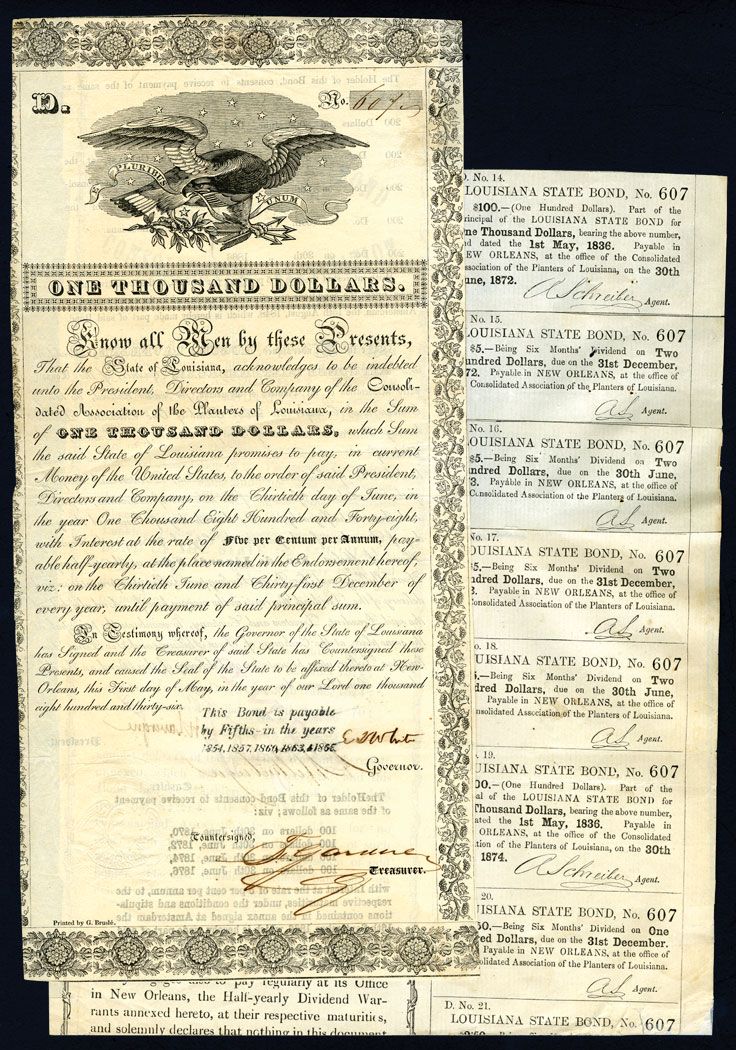 D.
No. 607
PLURIBUS
UNUM
ONE THOUSAND DOLLARS.
Know all Men by these Presents,
That the State of Louisiana, acknowledges to be indebted
unto the President, Directors and Company of the Consoli-
dated Association of the Planters of Louisiana, in the Sum
of ONE THOUSAND DOLLARS, which Sum
the said State of Louisiana promises to pay, in current
Money of the United States, to the order of said President,
Directors and Company, on the Thirtieth day of June, in
the year One Thousand Eight Hundred and Forty-eight,
with Interest at the rate of Five per Centum per Annum, pay-
able half-yearly, at the place named in the Endorsement hereof,
viz: on the Thirtieth June and Thirty-first December of
every year, until payment of said principal sum.
In Testimony whereof, the Governor of the State of Louisiana
has Signed and the Treasurer of said State has Countersigned these
Presents, and caused the Seal of the State to be affixed thereto at New-
Orleans, this First day of May, in the year of our Lord one thousand
eight hundred and thirty-six.
This Bond is payable
by Fifths in the years
1854, 1857, 1860, 1863, & 1866.
E D White
Governor.
Countersigned,
Treasurer.
Printed by G. Bruslé.
to pay regularly at its Office
in New Orleans, the Half-yearly Dividend War-
rants annexed hereto, at their respective maturities,
and solemnly declares that nothing in this document
D. No. 14.
LOUISIANA STATE BOND, No. 607
$100.—(One Hundred Dollars). Part of the
rincipal of the LOUISIANA STATE BOND for
ne Thousand Dollars, bearing the above number,
d dated the 1st May, 1836. Payable in
EW ORLEANS, at the office of the Consolidated
ssociation of the Planters of Louisiana, on the 30th
une, 1872.
A Schreiber Agent.
No. 15.
LOUISIANA STATE BOND, No. 607
$5.—Being Six Months' Dividend on Two
undred Dollars, due on the 31st December,
72. Payable in NEW ORLEANS, at the office of
Consolidated Association of the Planters of Louisiana.
A.S. Agent.
No. 16.
OUISIANA STATE BOND, No. 607
$5.—Being Six Months' Dividend on Two
undred Dollars, due on the 30th June,
3. Payable in NEW ORLEANS, at the office of
Consolidated Association of the Planters of Louisiana.
A.S. Agent.
No. 17.
OUISIANA STATE BOND, No. 607
5.—Being Six Months' Dividend on Two
ndred Dollars, due on the 31st December,
3. Payable in NEW ORLEANS, at the office of the
onsolidated Association of the Planters of Louisiana.
A.S. Agent.
o. 18.
UISIANA STATE BOND, No. 607
.—Being Six Months' Dividend on Two
dred Dollars, due on the 30th June,
Payable in NEW ORLEANS, at the office of the
nsolidated Association of the Planters of Louisiana.
A.S. Agent.
19.
UISIANA STATE BOND, No. 607
00.—(One Hundred Dollars). Part of the
al of the LOUISIANA STATE BOND for
Thousand Dollars, bearing the above number,
ated the 1st May, 1836. Payable in
ORLEANS, at the office of the Consolidated
tion of the Planters of Louisiana, on the 30th
1874.
A Schreiber Agent.
20.
UISIANA STATE BOND, No. 607
50.—Being Six Months' Dividend on One
ed Dollars, due on the 31st December.
Payable in NEW ORLEANS, at the office of the
lidated Association of the Planters of Louisiana.
A.S. Agent.
D. No. 21.
LOUISIANA STATE BOND, No. 607
Being Six Months' Dividend on One